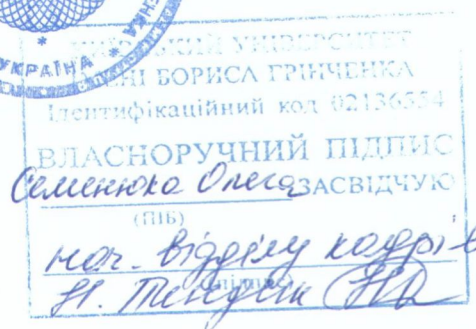 УКРАЇНА *
КИЇВСЬКИЙ УНІВЕРСИТЕТ
ІМЕНІ БОРИСА ГРІНЧЕНКА
Ідентифікаційний код 02136554
ВЛАСНОРУЧНИЙ ПІДПИС
Семенюка Олега ЗАСВІДЧУЮ
(ПІБ)
нач. відділу кадрів
Н.